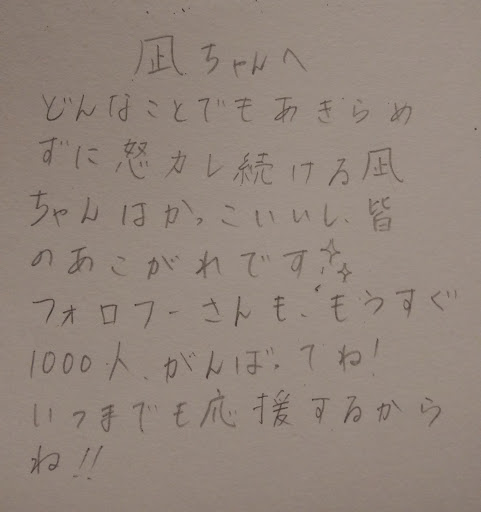 凪ちゃんへ
どんなことでもあきらめ
ずに怒力し続ける凪
ちゃんはかっこいいし、皆
のあこがれです✨
フォロフーさんも、もうすぐ
1000人、がんばってね!
いつまでも応援するから
ね!!